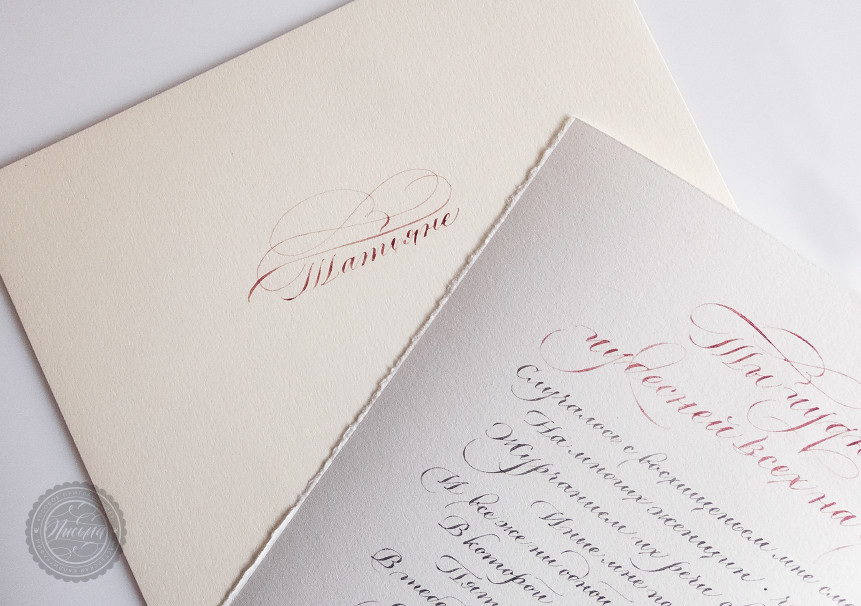 Татьяне
Ты чудн
чудесней всех на
Случалось с восхищением мне слу
На многих женщин
Журчанием их речи
Иные мне по
И все же ни одной
В которой
Пят
В тебе
Письма